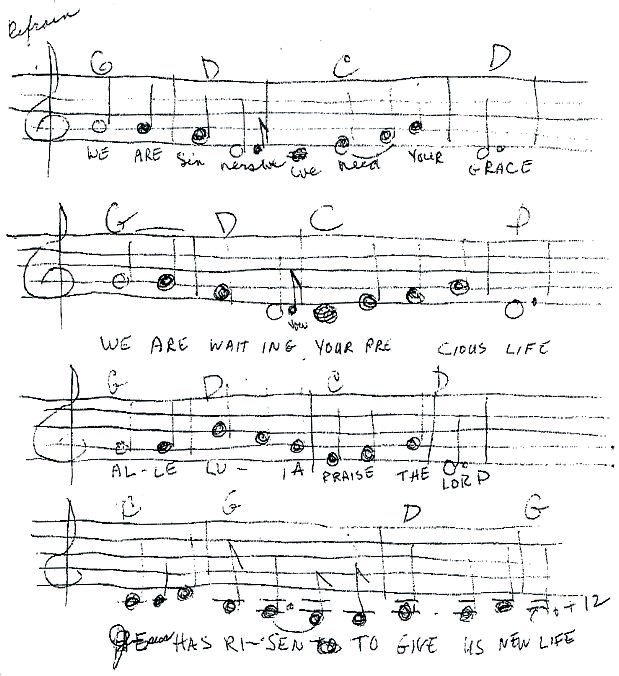 Refrain
G D C D
WE ARE Sin ners we need YOUR GRACE
G D C D
WE ARE WAIT ING YOUR PRE CIOUS LIFE
G D C D
AL-LE LU - IA PRAISE THE LORD
C G D G
Jesus HAS RI-SEN TO GIVE US NEW LIFE